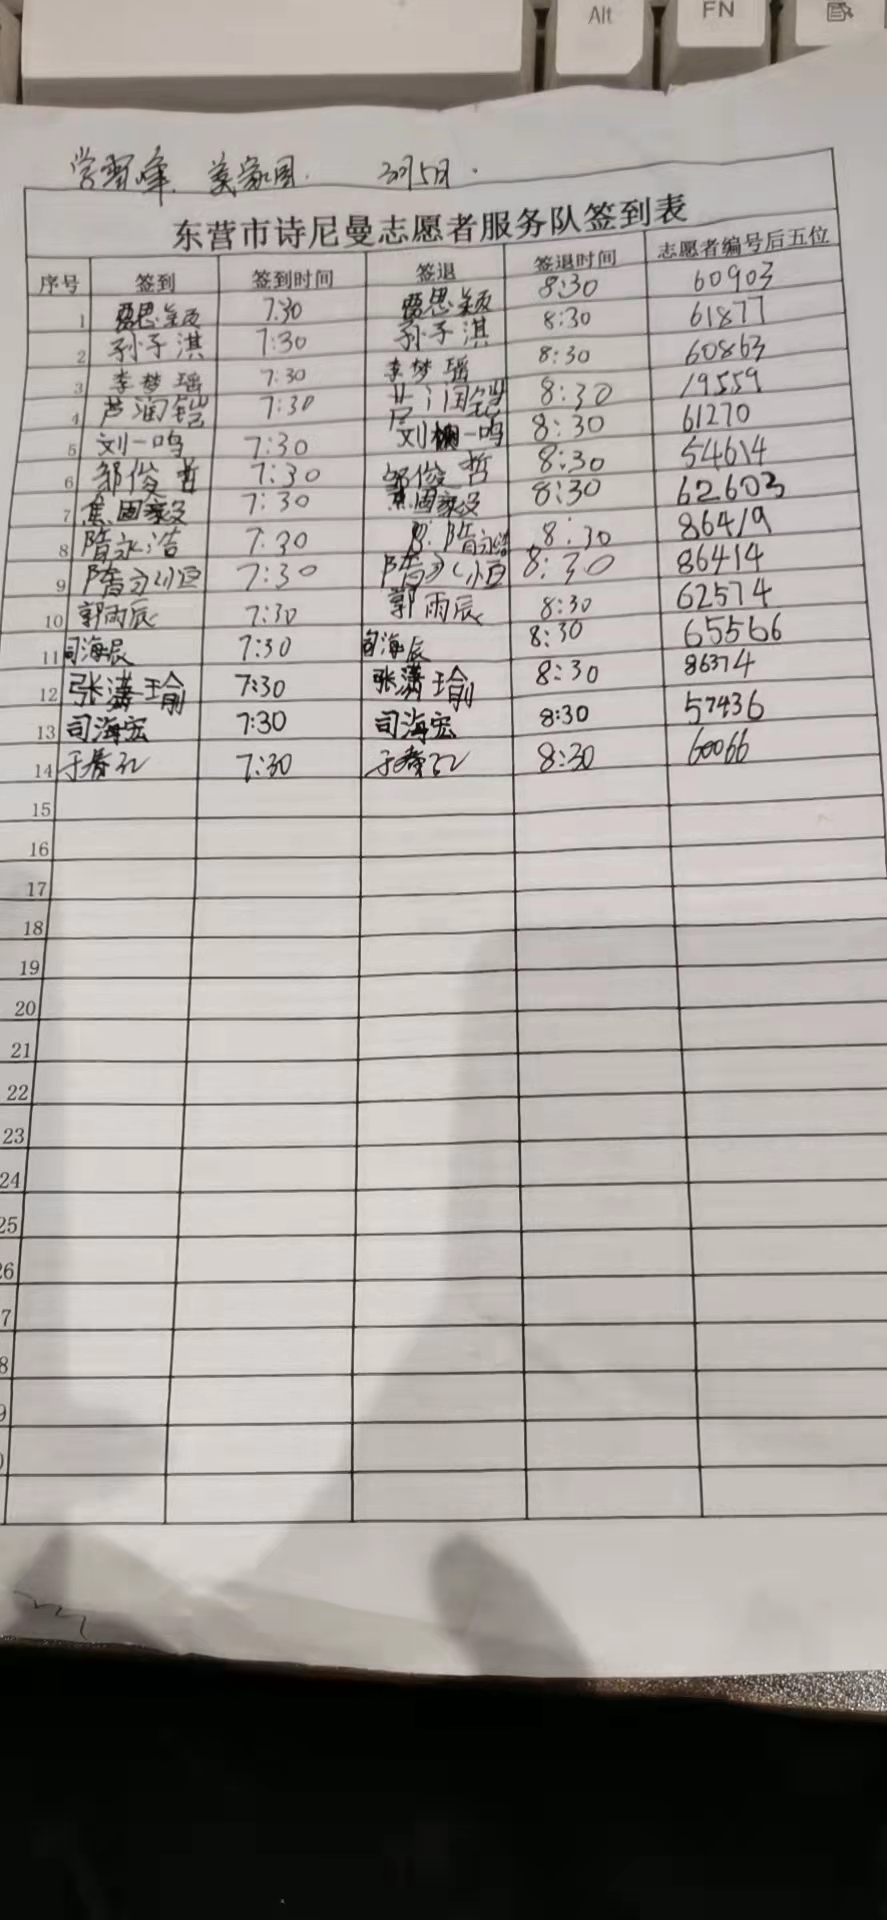 Alt FN
学习峰 美家园 3月5日.
东营市诗尼曼志愿者服务队签到表
序号 签到 签到时间 签退 签退时间 志愿者编号后五位
1 贾思颖 7:30 贾思颖 8:30 60903
2 孙子淇 7:30 孙子淇 8:30 61877
3 李梦瑶 7:30 李梦瑶 8:30 60863
4 芦润铠 7:30 芦润铠 8:30 19559
5 刘一鸣 7:30 刘一鸣 8:30 61270
6 邹俊哲 7:30 邹俊哲 8:30 54614
7 焦 7:30 焦 8:30 62603
8 隋永浩 7:30 隋永浩 8:30 86419
9 隋永恒 7:30 隋永恒 8:30 86414
10 郭雨辰 7:30 郭雨辰 8:30 62574
11 司海辰 7:30 司海辰 8:30 65566
12 张潇瑜 7:30 张潇瑜 8:30 86374
13 司海宏 7:30 司海宏 8:30 57436
14 于春 7:30 于春 8:30 60066
15
16
17
18
19
20
21
22
23
24
25
26
7
8
9